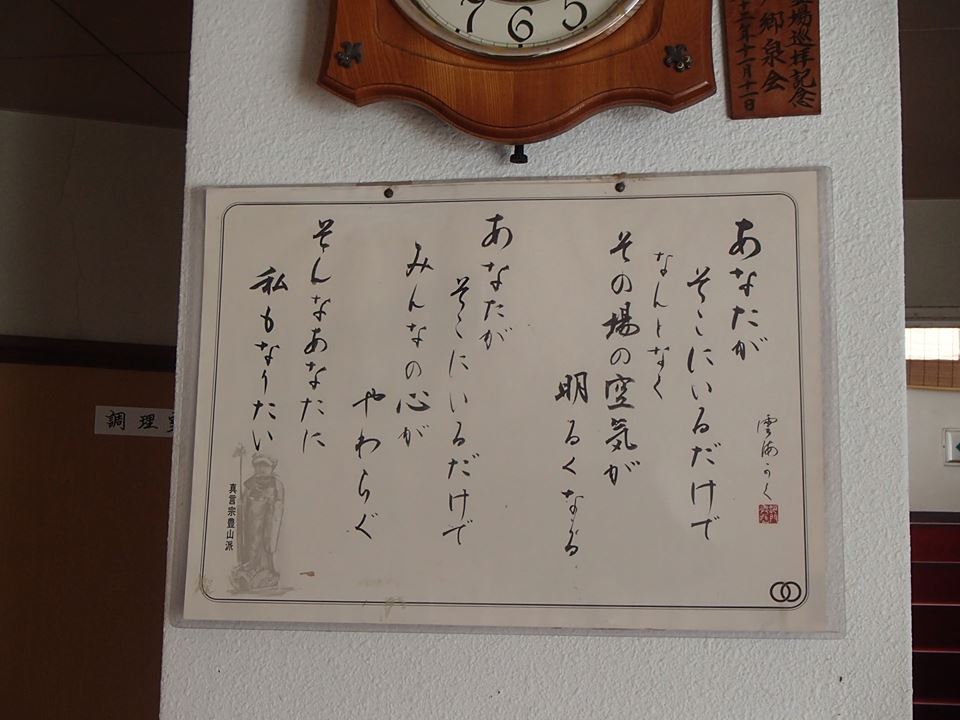 7 6 5
霊場巡拝記念
郷泉会
十二年十一月十一日
あなたが
そこにいるだけで
なんとなく
その場の空気が
明るくなる
あなたが
そこにいるだけで
みんなの心が
やわらぐ
そんなあなたに
私もなりたい
雲海かく
真言宗豊山派
調理室